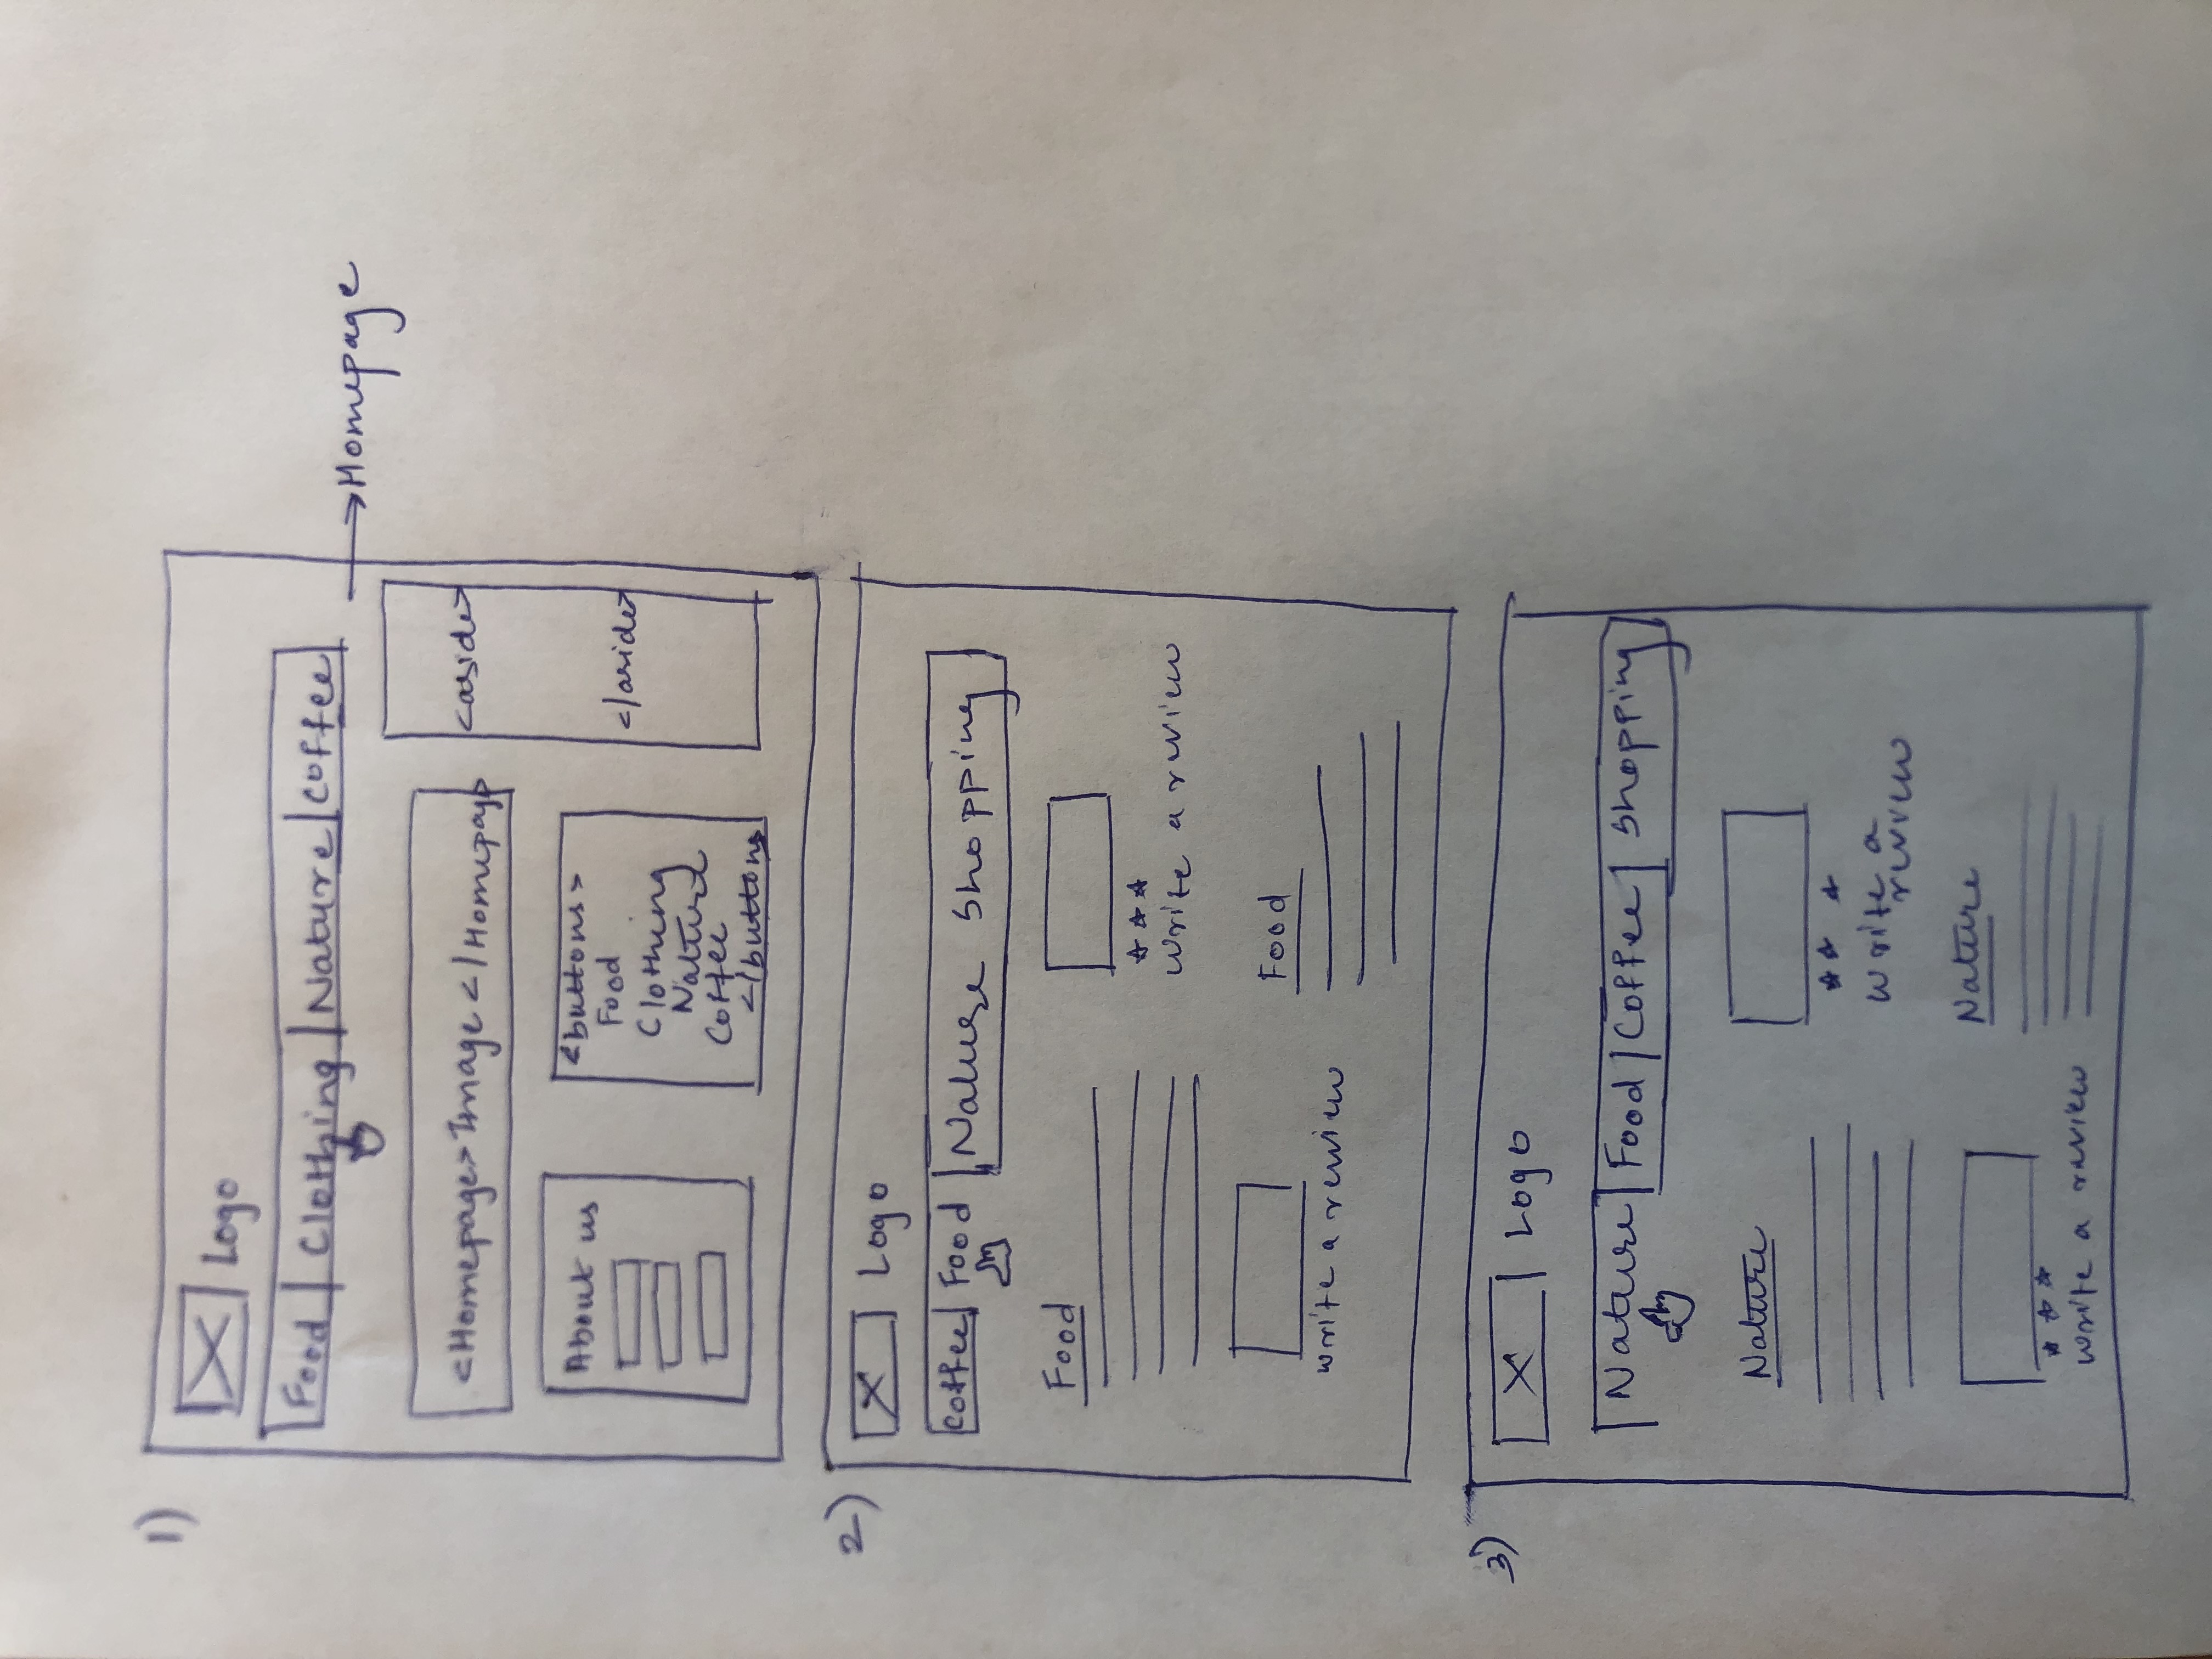 1)
Logo
Food Clothing Nature Coffee
→Homepage
<Homepage>Image</Homepage
<aside>
</aside>
About us
<buttons>
Food
Clothing
Nature
Coffee
</buttons>
2)
Logo
Coffee Food Nature Shopping
Food
★★★
Write a review
Write a review
Food
3)
Logo
Nature Food Coffee Shopping
Nature
★★ ★
Write a
review
Nature
★ ★ ★
Write a review